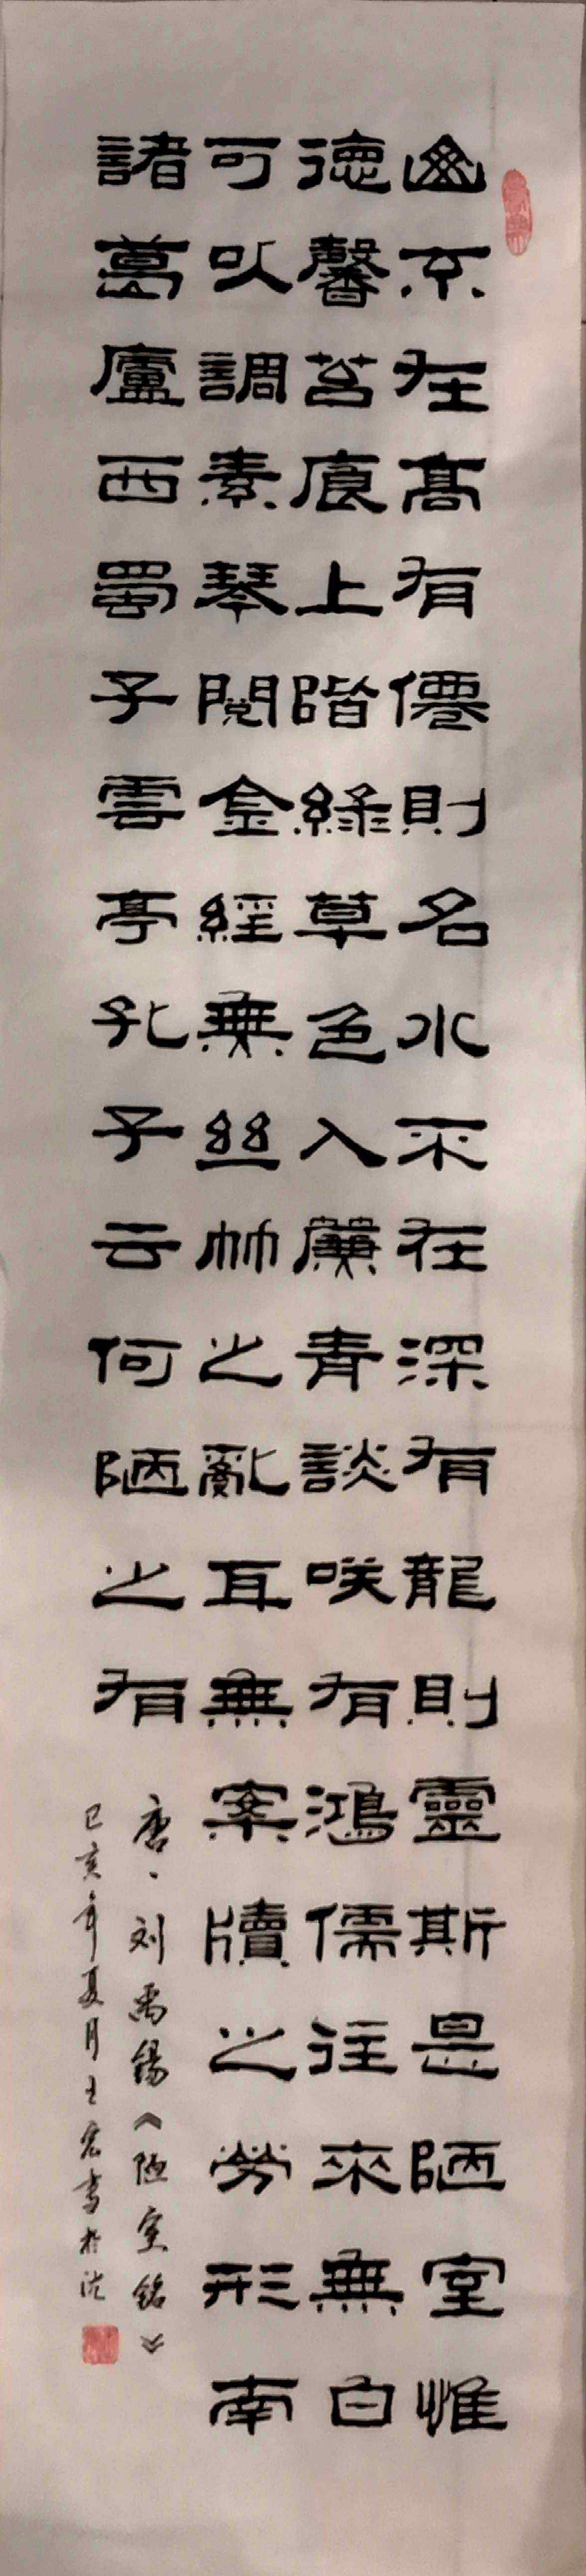 山不在高有僊則名水不在深有龍則靈斯是陋室惟
德馨苔痕上階綠草色入廉青談咲有鴻儒往來無白
可以調素琴閱金經無丝竹之亂耳無案牘之勞形南
諸葛廬西蜀子雲亭孔子云何陋之有
唐、刘禹锡《陋室铭》
己亥年夏月王宏書於沈